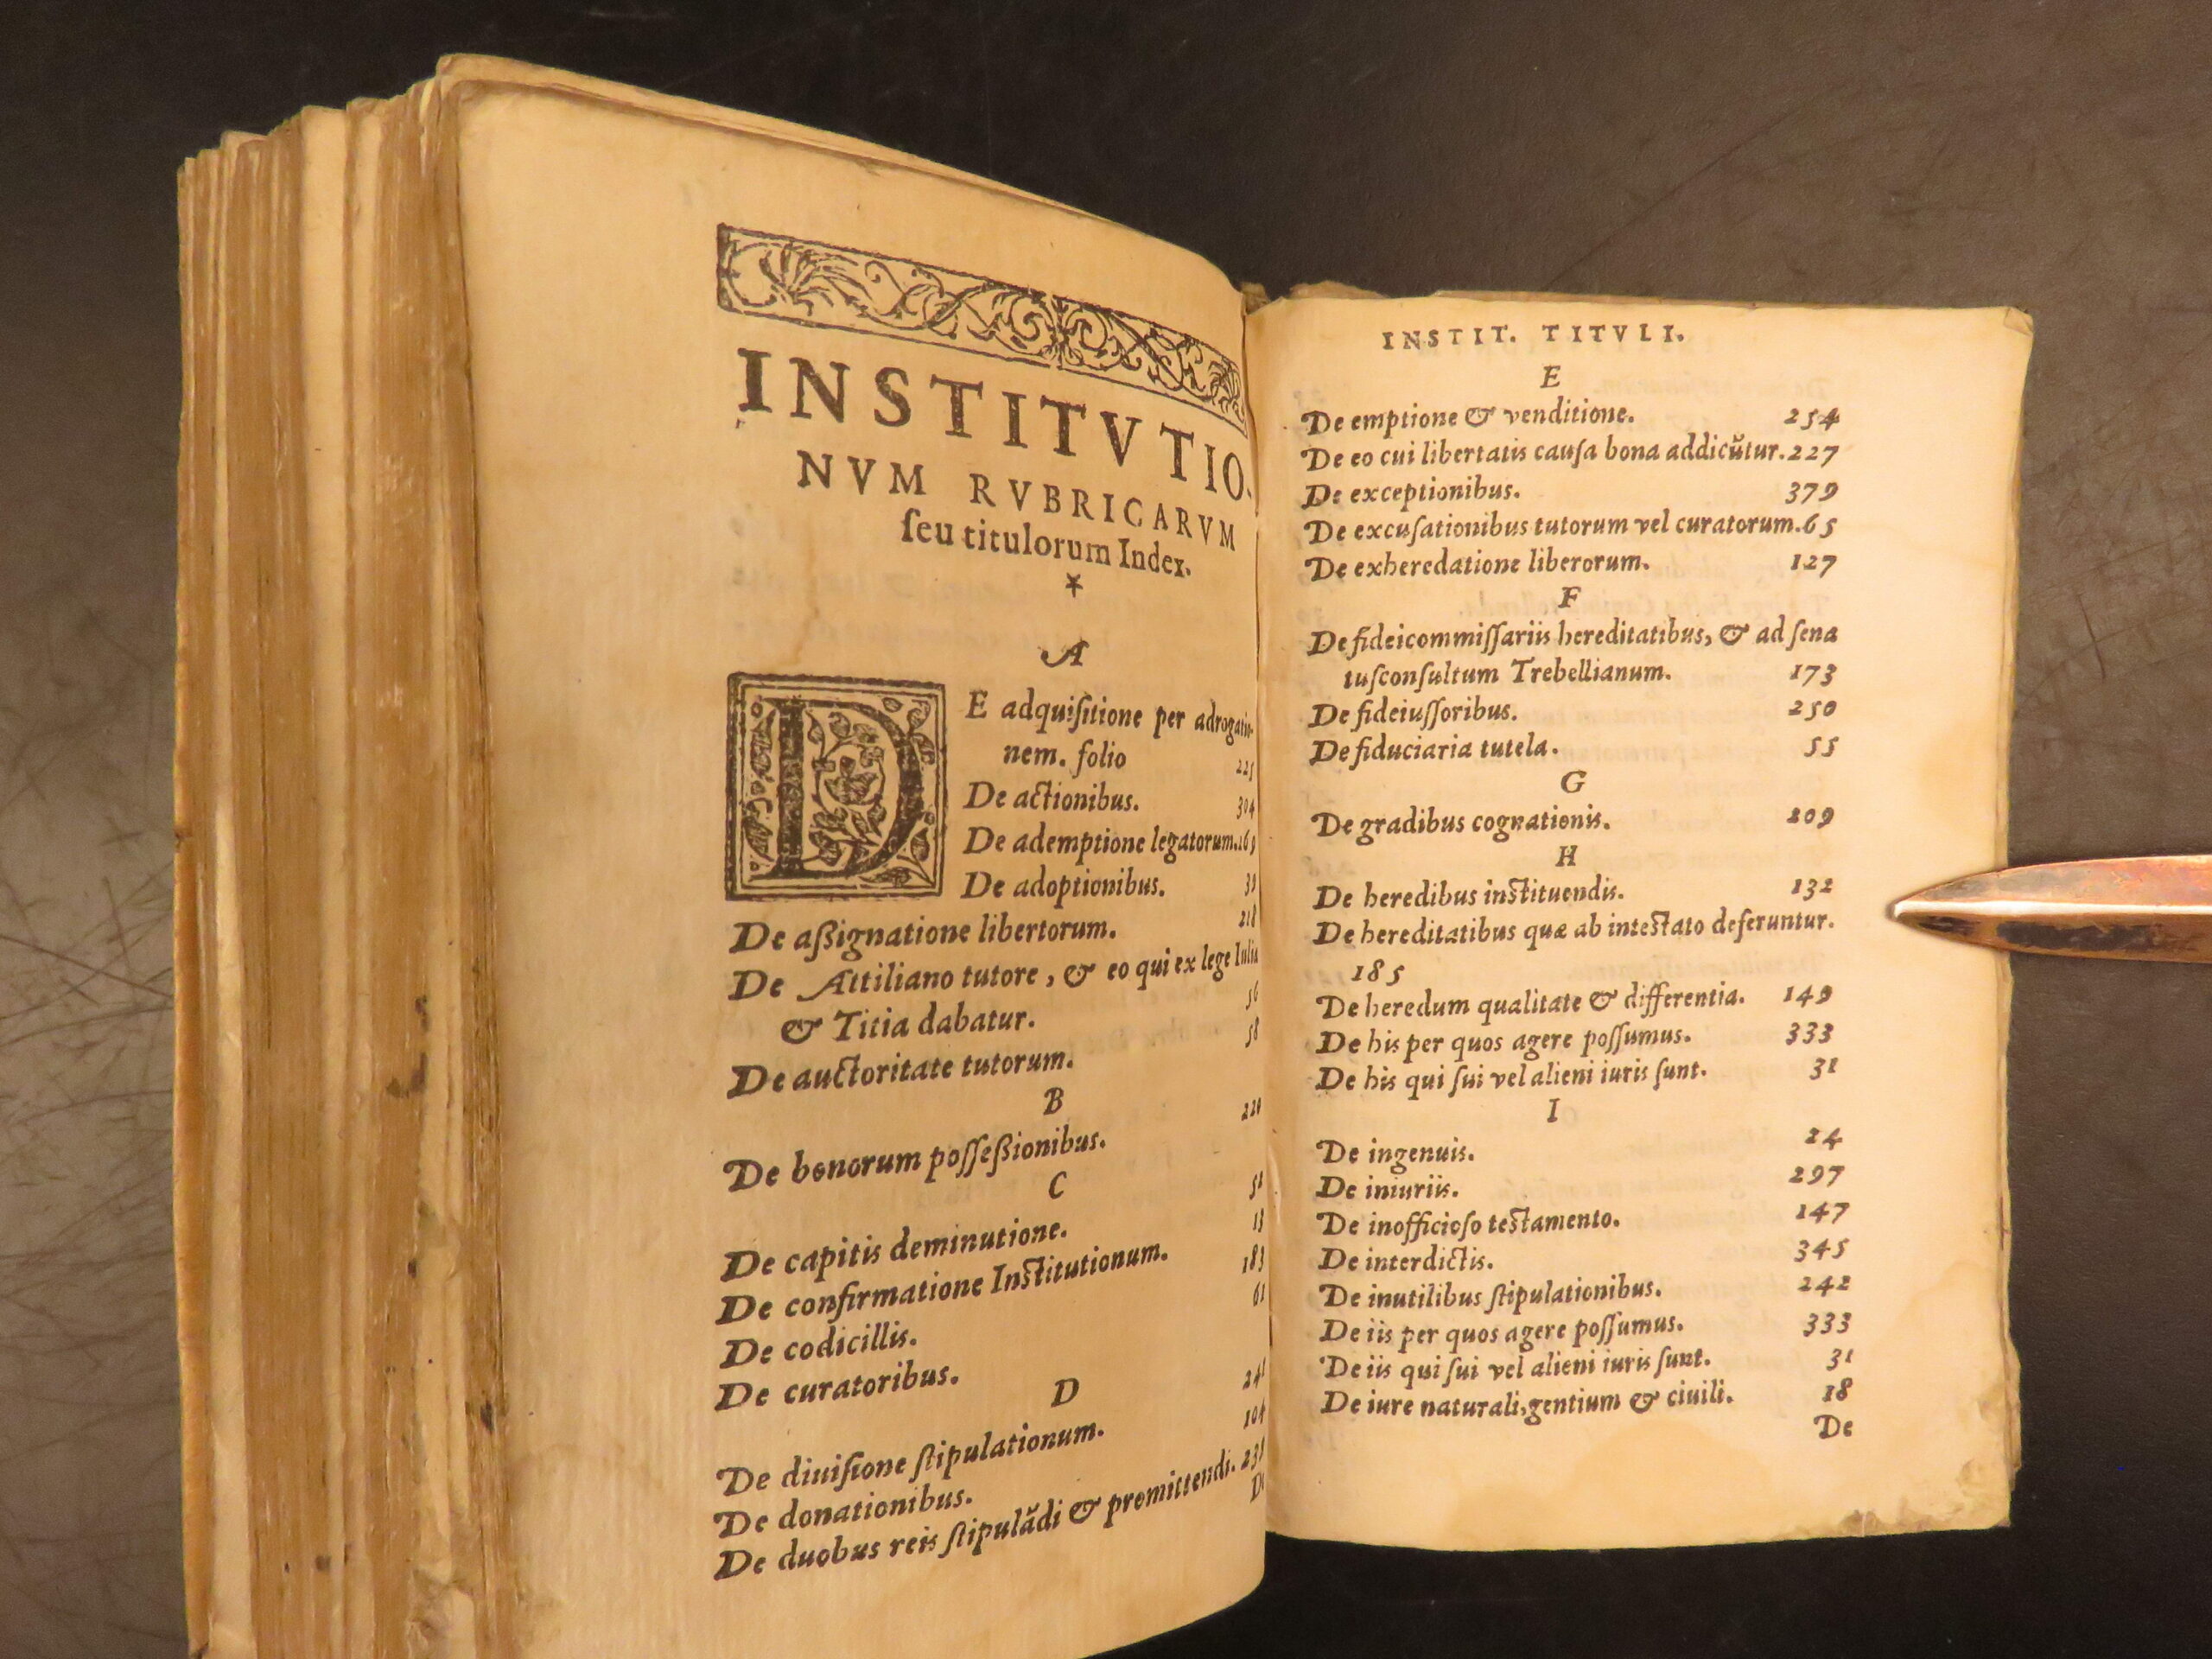 INSTITVTIO-
NVM RVBRICARVM
ſeu titulorum Index.
A
DE adquiſitione per adrogatio-
nem. folio 225
De actionibus. 304
De ademptione legatorum. 169
De adoptionibus. 39
De aßignatione libertorum. 218
De Attiliano tutore, & eo qui ex lege Iulia
& Titia dabatur. 56
De auctoritate tutorum. 58
B
De bonorum poſſeßionibus. 220
C
De capitis deminutione. 51
De confirmatione Inſtitutionum. 13
De codicillis. 183
De curatoribus. 61
D
De diuiſione ſtipulationum. 241
De donationibus. 104
De duobus reis ſtipulādi & promittendi. 238
De
INSTIT. TITVLI.
E
De emptione & venditione. 254
De eo cui libertatis cauſa bona addicūtur. 227
De exceptionibus. 379
De excuſationibus tutorum vel curatorum. 65
De exheredatione liberorum. 127
F
De fideicommiſſariis hereditatibus, & ad ſena
tuſconſultum Trebellianum. 173
De fideiuſſoribus. 250
De fiduciaria tutela. 55
G
De gradibus cognationis. 209
H
De heredibus inſtituendis. 132
De hereditatibus quæ ab inteſtato deferuntur.
185
De heredum qualitate & differentia. 149
De his per quos agere poſſumus. 333
De his qui ſui vel alieni iuris ſunt. 31
I
De ingenuis. 24
De iniuriis. 297
De inofficioſo teſtamento. 147
De interdictis. 345
De inutilibus ſtipulationibus. 242
De iis per quos agere poſſumus. 333
De iis qui ſui vel alieni iuris ſunt. 31
De iure naturali, gentium & ciuili. 18
De